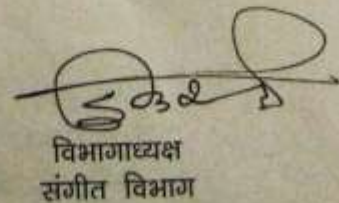 विभागाध्यक्ष
संगीत विभाग